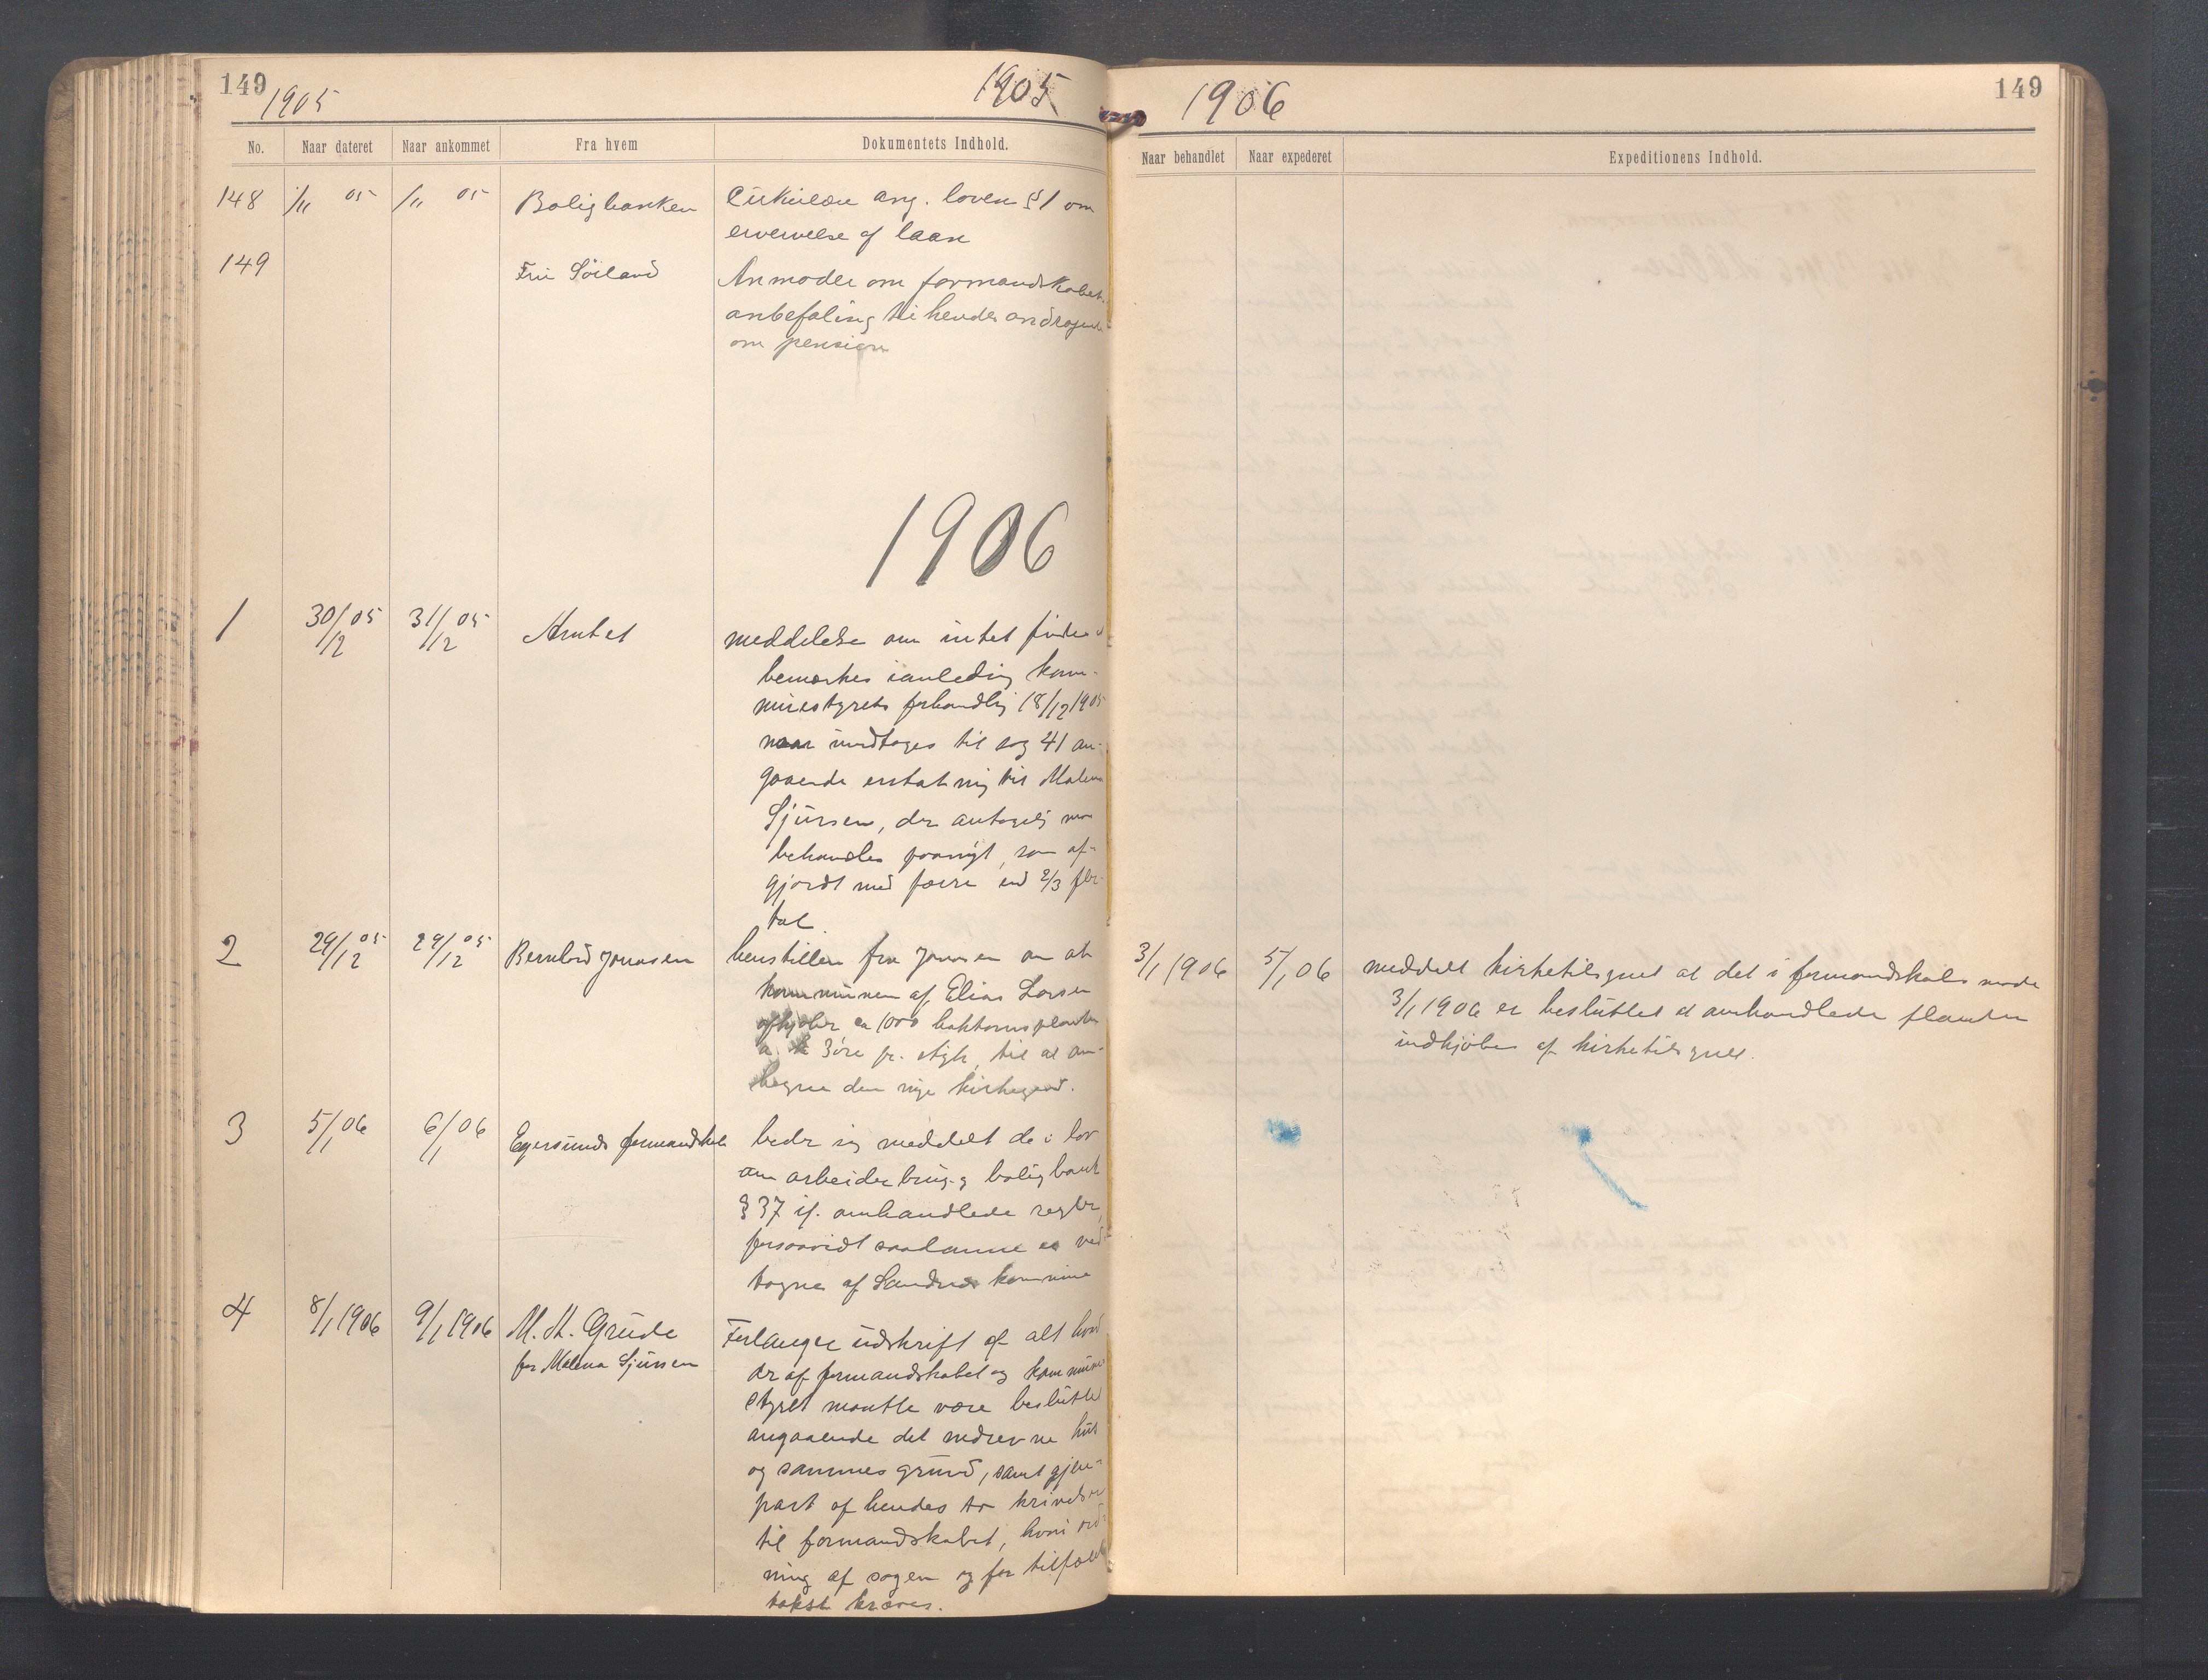 149
1905
1905
No.
Naar dateret
Naar ankommet
Fra hvem
Dokumentets Indhold.
148
1/11 05
1/11 05
Boligbanken
Cirkulære ang. loven § 1 om
ervervelse af laan
149
Fru Söiland
Anmoder om formandskabets
anbefaling til hendes andragende
om pension
1906
1
30/12 05
31/12 05
Amtet
meddelelse om intet findes at
bemærkes ianledning kom-
munestyrets forhandling 18/12 1905
naar undtages til sag 41 an-
gaaende erstatning til Malena
Sjürsen, der antagelig maa
behandles paanyt, som af-
gjordt med færre end 2/3 fler-
tal.
2
29/12 05
29/12 05
Bernhard Jonasen
henstillen fra Jonasen om at
kommunen af Elias Larsen
afkjøber ca 1000 haktorns planter
a 3 øre pr. stÿk, til at om-
hegne den nye kirkegaard.
3
5/1 06
6/1 06
Egersunds formandskab
beder sig meddelt de i lov
om arbeiderbrug- og boligbank
§ 37 jf. omhandlede regler,
forsaavidt saadanne er ved-
tagne af Sandnes kommune
4
8/1 1906
9/1 1906
M. A. Grude
for Malena Sjürsen
Forlanger udskrift af alt hvad
der af formandskabet og kommune
styret maatte være besluttet
angaaende det nedrevne hus
og sammes grund, samt gjen-
part af hendes to skrivelser
til formandskabet, hvori ord-
ning af sagen og for tilfælde
takst kræves.
1906
149
Naar behandlet
Naar expederet
Expeditionens Indhold.
3/1 1906
5/1 06
meddelt kirketilsynet at det i formandskabs møde
3/1 1906 er besluttet at omhandlede planter
indkjøbes af kirketilsynet.